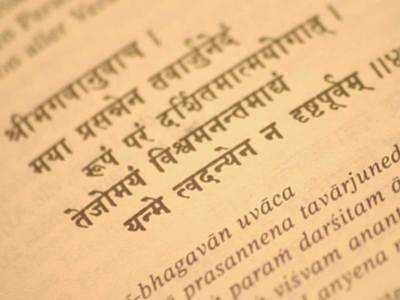 on aller
श्रीभगवानुवाच ।
मया प्रसन्नेन तवार्जुनेदं
रूपं परं दर्शितमात्मयोगात् ।
तेजोमयं विश्वमनन्तमाद्यं
यन्मे त्वदन्येन न दृष्टपूर्वम् ॥
-bhagavān uvāca
prasannena tavārjuned
paraṃ darśitam ā
viśvam anan
anyena n